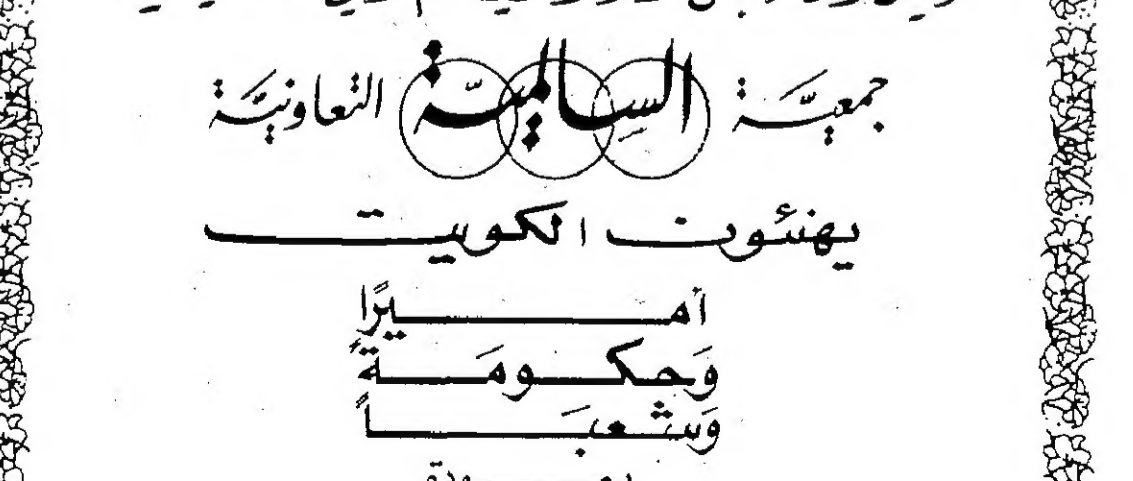 جمعيَّة السالميّة التعاونيَّة
يهنئون الكويت
أميرًا
وَحكومَةً
وَشعبَاً